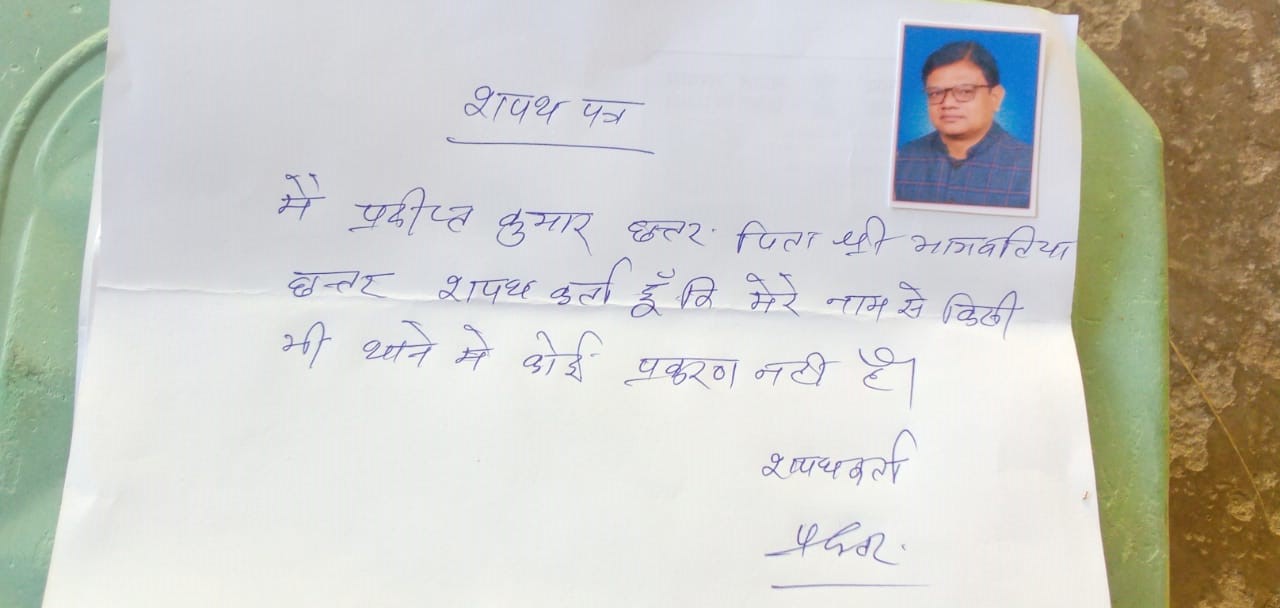 शपथ पत्र
मैं प्रदीप्त कुमार छत्तर पिता श्री भागवतिया
छत्तर शपथ कर्ता हूँ कि मेरे नाम से किसी
भी थाने मे कोई प्रकरण नही है।
शपथकर्ता